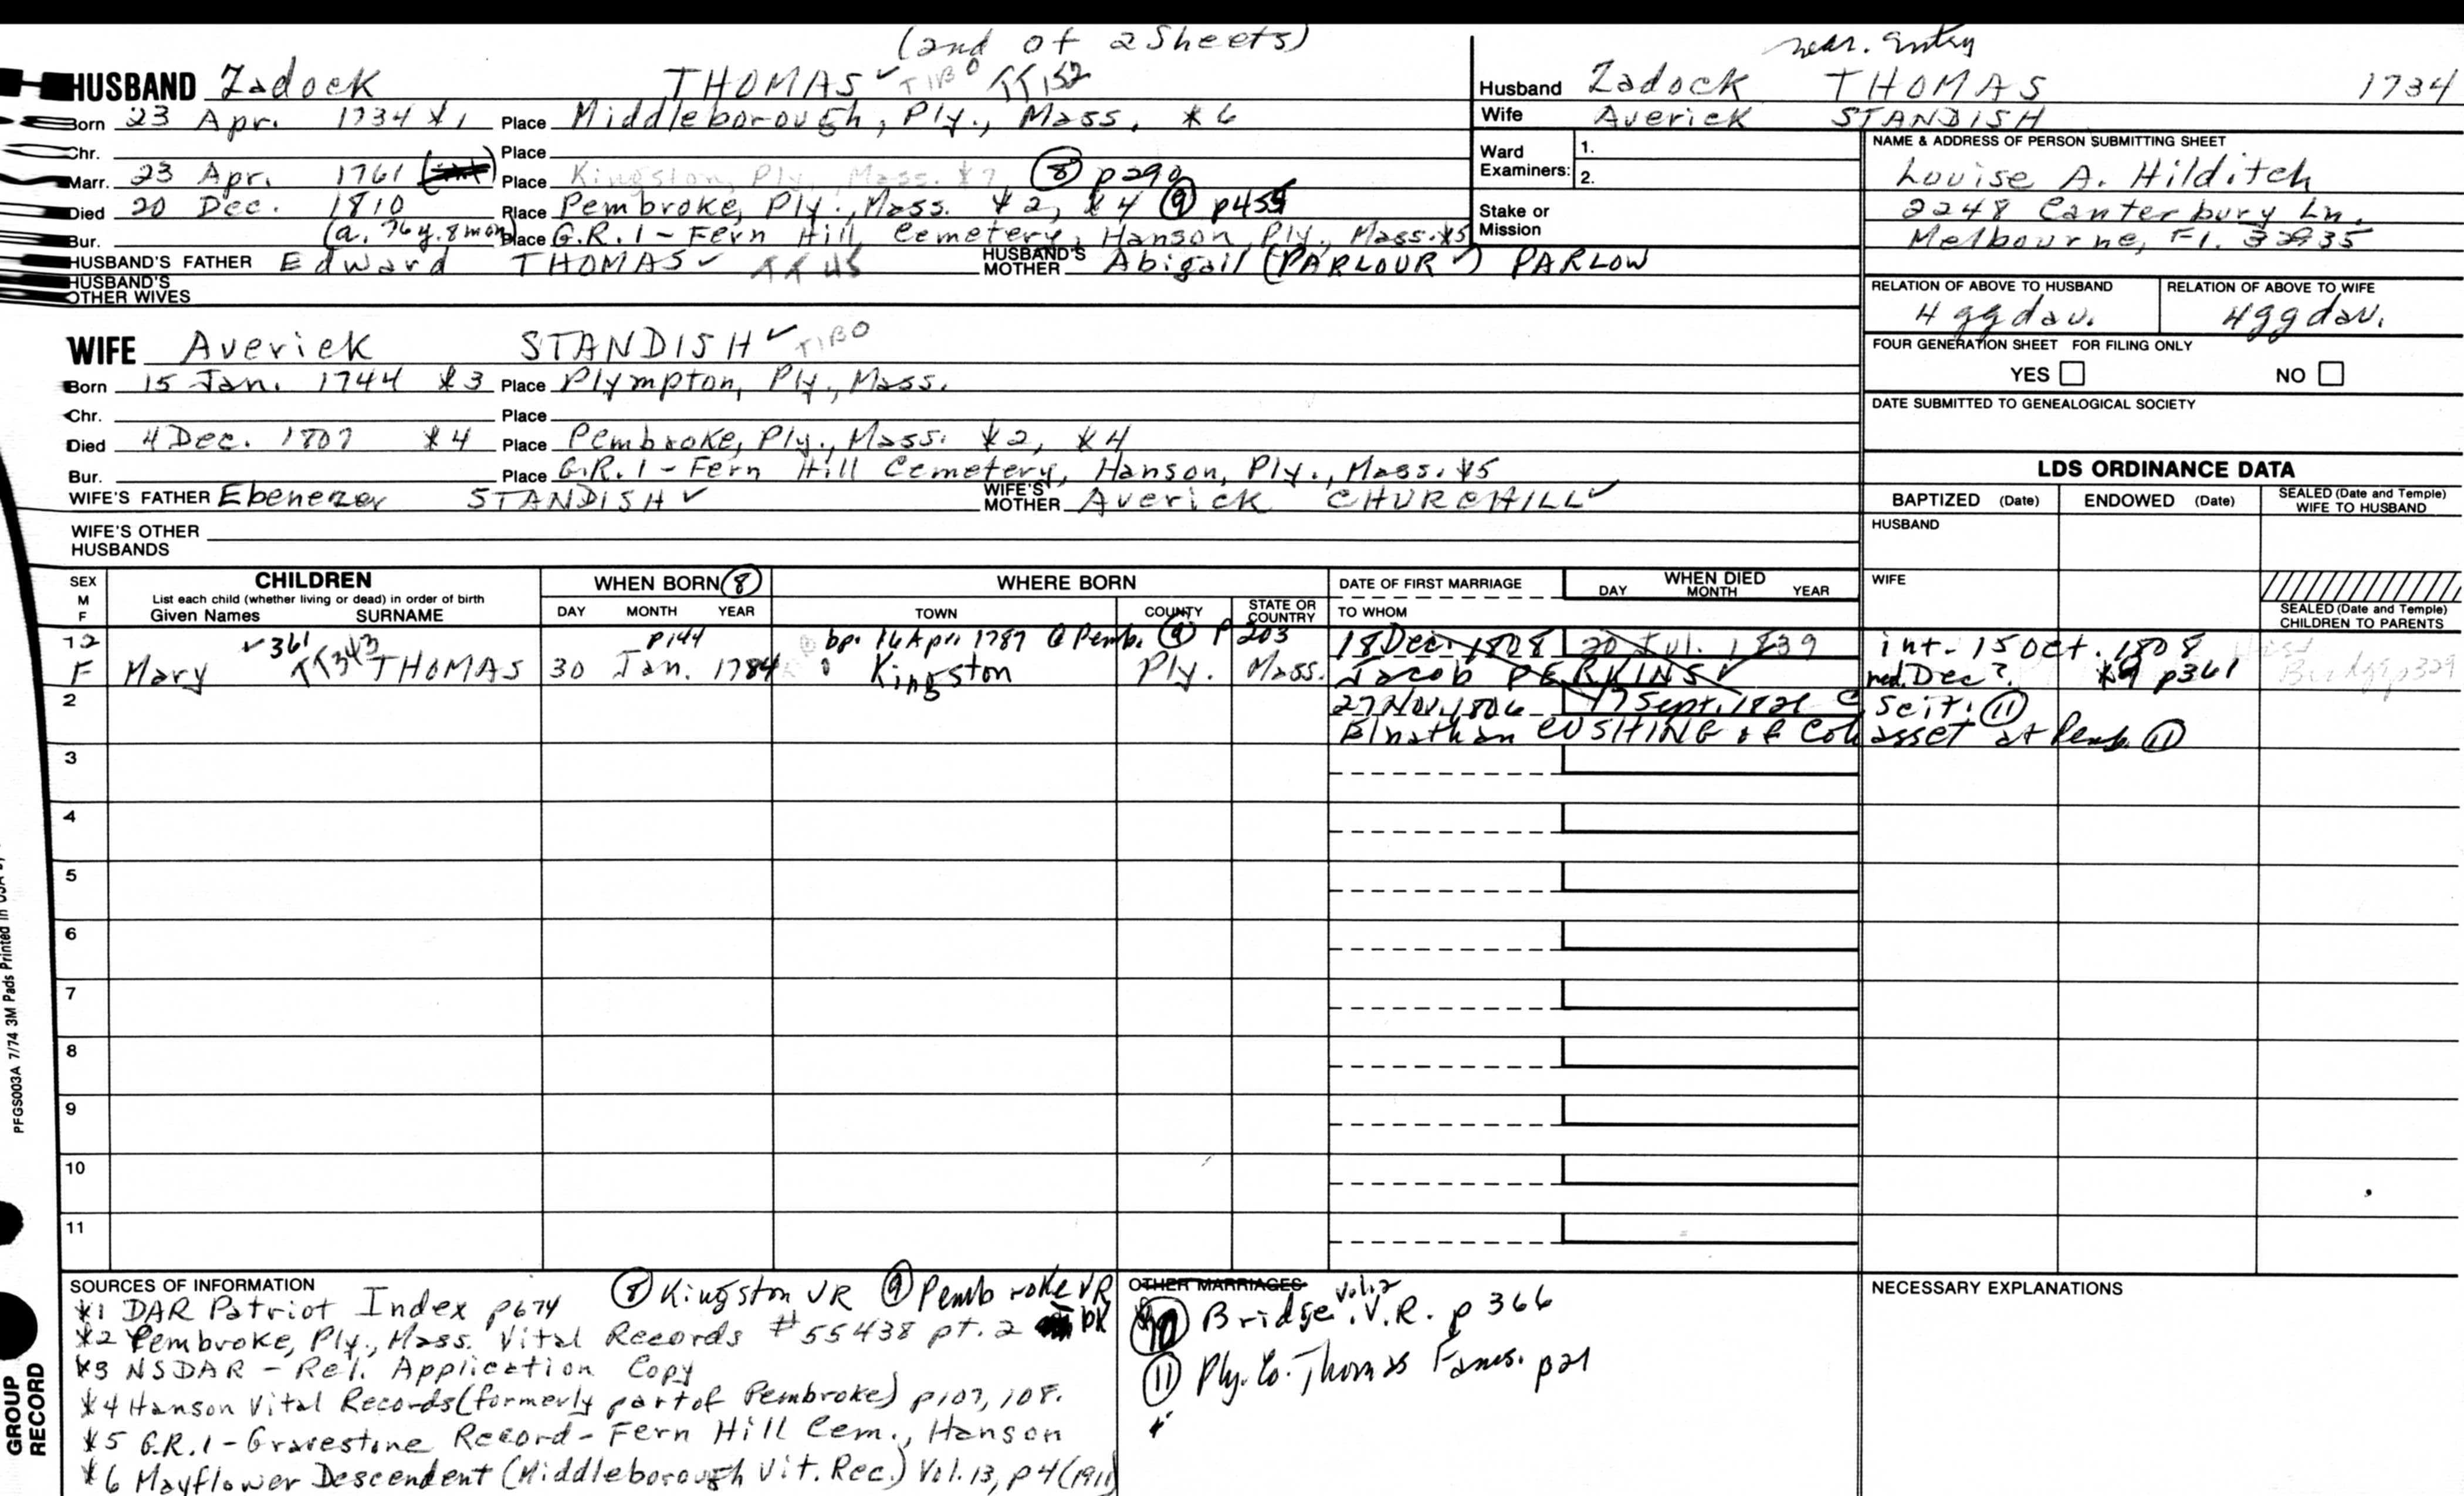 (2nd of 2 Sheets)
HUSBAND Zadock THOMAS ✓ TIBO
Born 23 Apr. 1734 *1 Place Middleborough, Ply., Mass. *6
Chr. Place
Marr. 23 Apr. 1761 Place Kingston, Ply., Mass. *7 ⑧ p290
Died 20 Dec. 1810 Place Pembroke, Ply., Mass. *2, *4 ⑨ p455
Bur. (a. 76y. 8mon) Place G.R.1 - Fern Hill Cemetery, Hanson, Ply., Mass. *5
HUSBAND'S FATHER Edward THOMAS ✓ HUSBAND'S MOTHER Abigail (PARLOUR ✓) PARLOW
HUSBAND'S OTHER WIVES
WIFE Averick STANDISH ✓ TIBO
Born 15 Jan. 1744 *3 Place Plympton, Ply., Mass.
Chr. Place
Died 4 Dec. 1807 *4 Place Pembroke, Ply., Mass. *2, *4
Bur. Place G.R.1 - Fern Hill Cemetery, Hanson, Ply., Mass. *5
WIFE'S FATHER Ebenezer STANDISH ✓ WIFE'S MOTHER Averick CHURCHILL ✓
WIFE'S OTHER HUSBANDS
Husband Zadock THOMAS 1734
Wife Averick STANDISH
Ward Examiners: 1.
2.
Stake or Mission
NAME & ADDRESS OF PERSON SUBMITTING SHEET
Louise A. Hilditch
2248 Canterbury Ln.
Melbourne, Fl. 32935
RELATION OF ABOVE TO HUSBAND RELATION OF ABOVE TO WIFE
4 ggdau. 4ggdau.
FOUR GENERATION SHEET FOR FILING ONLY
YES NO
DATE SUBMITTED TO GENEALOGICAL SOCIETY
LDS ORDINANCE DATA
BAPTIZED (Date) ENDOWED (Date) SEALED (Date and Temple) WIFE TO HUSBAND
HUSBAND
WIFE
SEALED (Date and Temple) CHILDREN TO PARENTS
SEX M F
CHILDREN
List each child (whether living or dead) in order of birth
Given Names SURNAME
WHEN BORN ⑧
DAY MONTH YEAR
WHERE BORN
TOWN COUNTY STATE OR COUNTRY
DATE OF FIRST MARRIAGE
TO WHOM
WHEN DIED
DAY MONTH YEAR
12 ✓361 p144 bp. 16 Apr. 1787 @ Pemb. ⑨ p 203 18 Dec. 1808 20 Jul. 1839 int. 15 Oct. 1808
F Mary THOMAS 30 Jan. 1784 Kingston Ply. Mass. Jacob PERKINS ✓ Dec?. *9 p361 Bridg p329
2 27 Nov. 1806 17 Sept. 1821 @ Scit. ⑪
Elnathan CUSHING of Cohasset at Pemb. ⑪
3
4
5
6
7
8
9
10
11
SOURCES OF INFORMATION
*1 DAR Patriot Index p674 ⑧ Kingston VR ⑨ Pembroke VR
*2 Pembroke, Ply., Mass. Vital Records #55438 pt. 2 bk
*3 NSDAR - Rel. Application Copy
*4 Hanson Vital Records (formerly part of Pembroke) p107, 108.
*5 G.R.1 - Gravestone Record - Fern Hill Cem., Hanson
*6 Mayflower Descendent (Middleborough Vit. Rec.) Vol. 13, p4 (1911)
OTHER MARRIAGES
⑩ Bridge. V.R. Vol. 2 p 366
⑪ Ply. Co. Thomas Fams. p21
NECESSARY EXPLANATIONS
PFGS0003A 7/74 3M Pads Printed in USA
GROUP RECORD